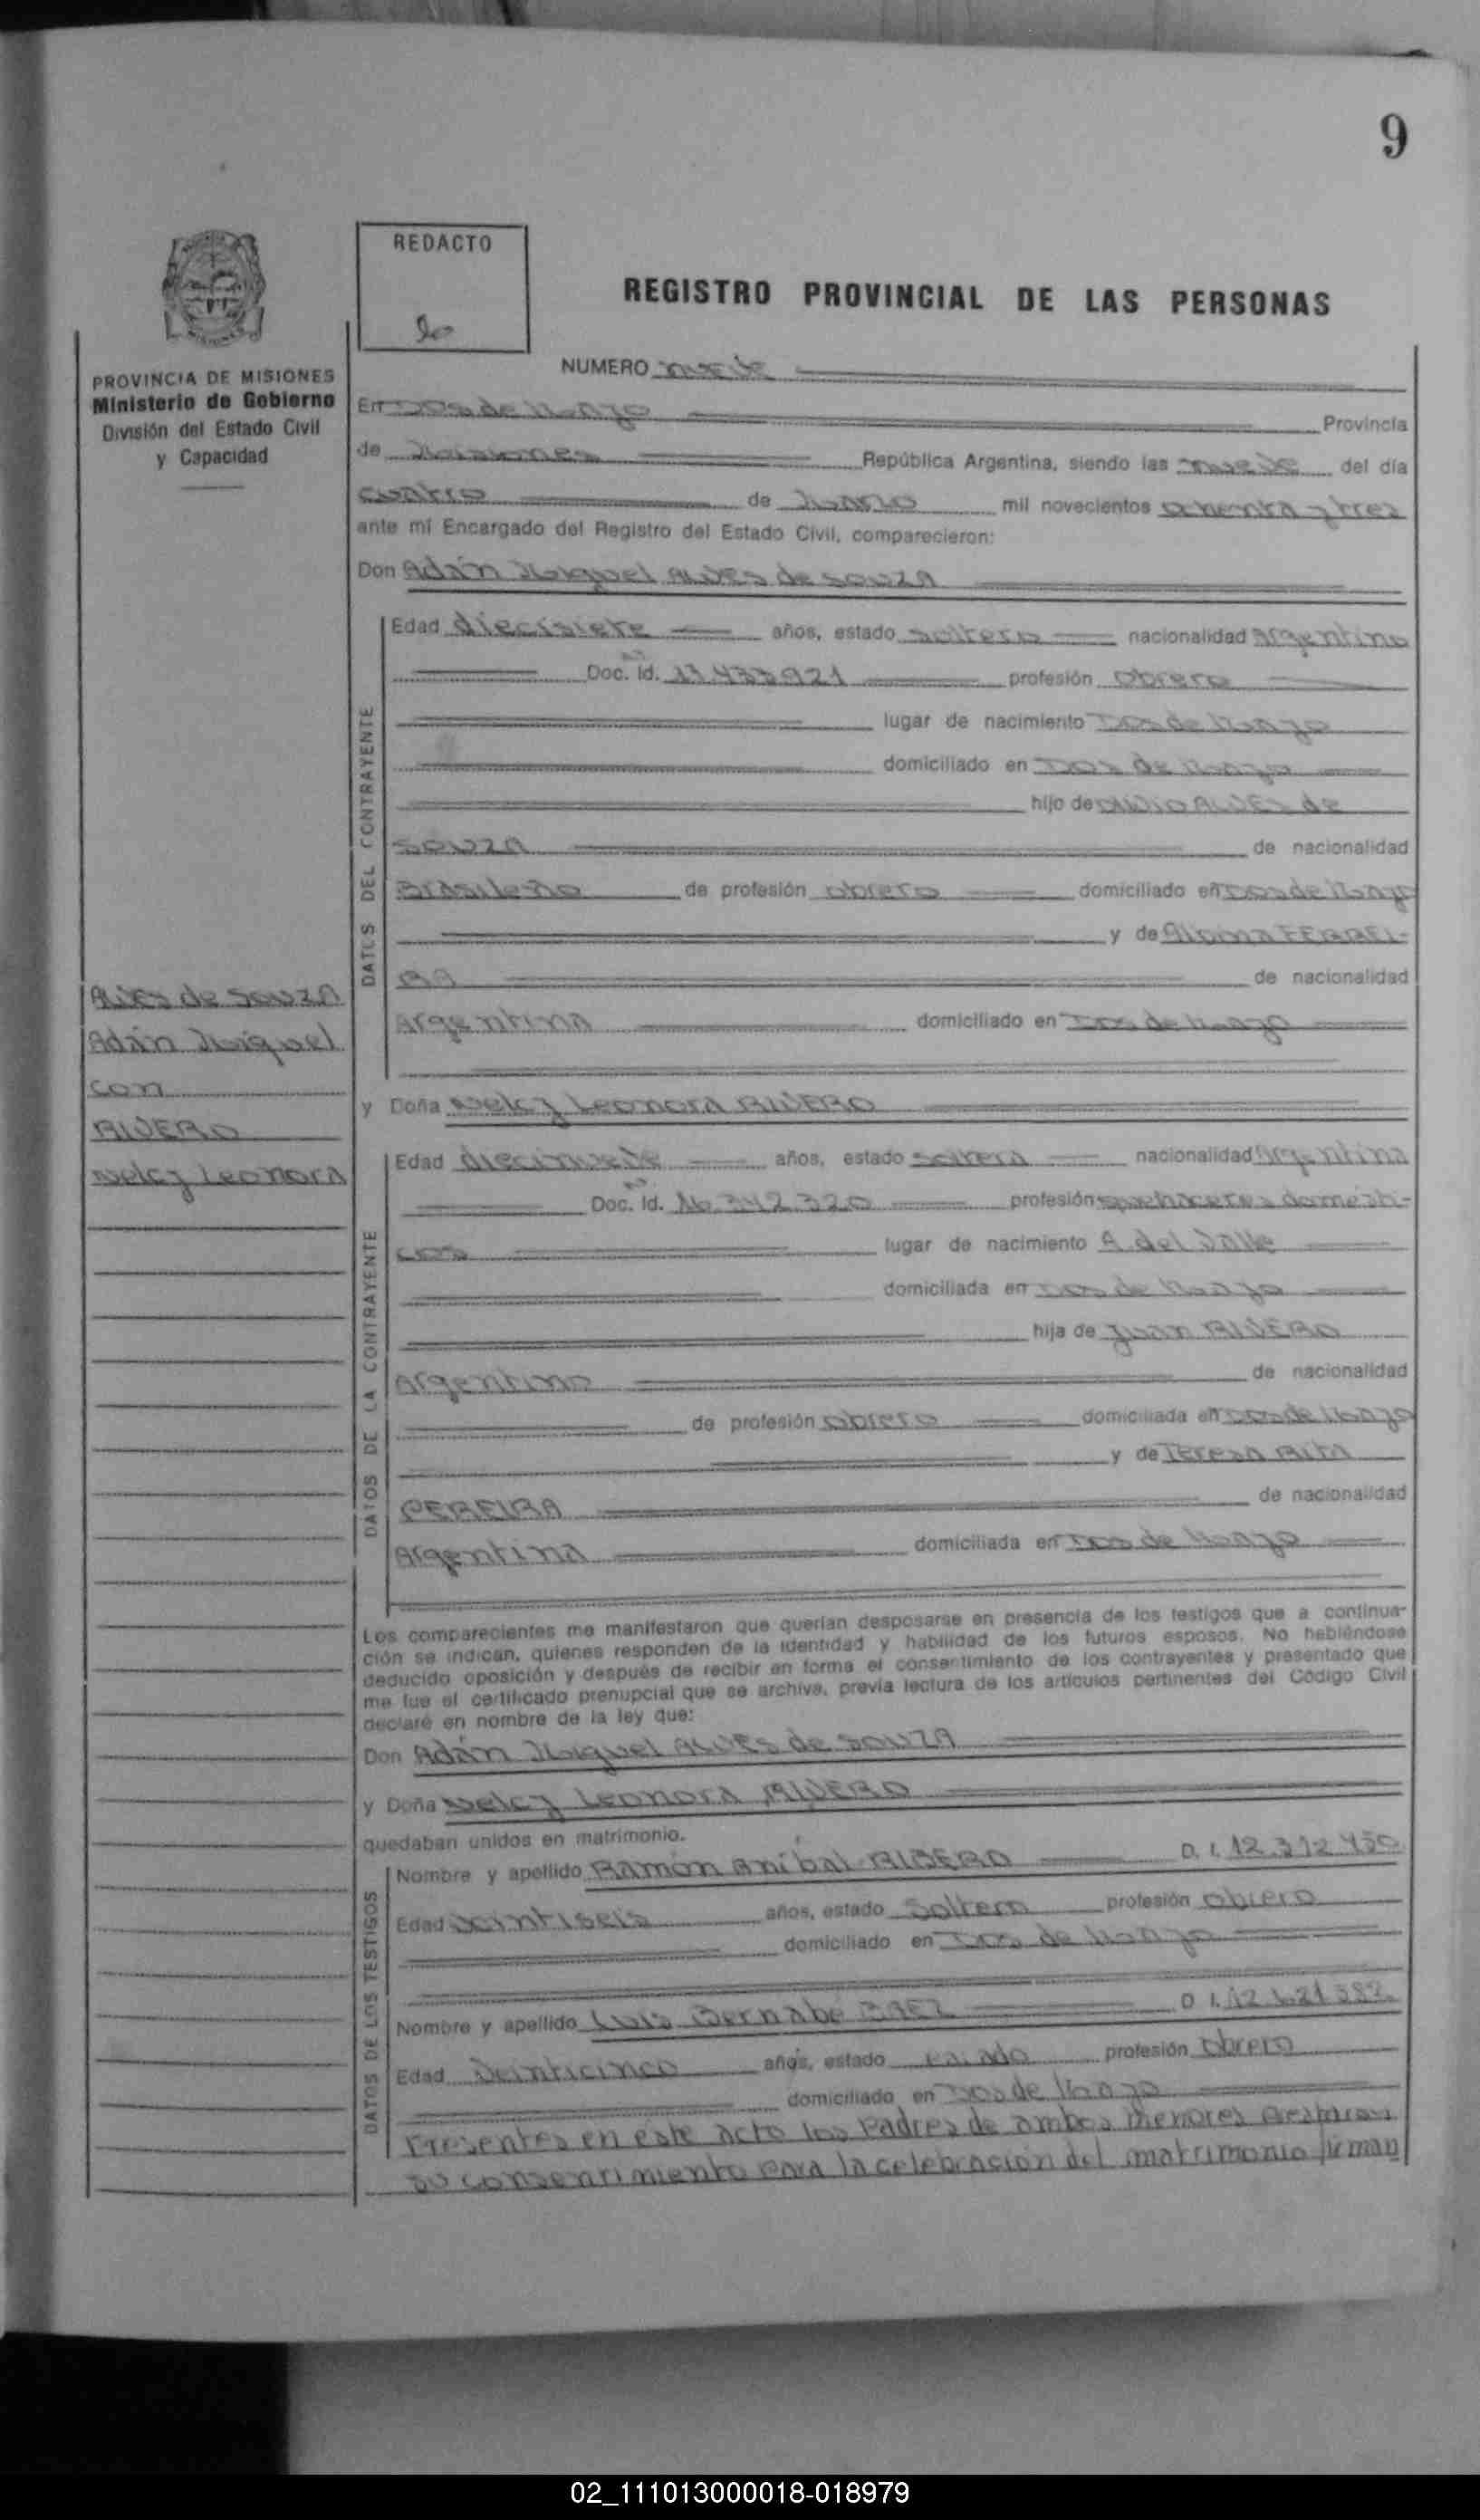 9
REDACTO
REGISTRO PROVINCIAL DE LAS PERSONAS
MISIONES
PROVINCIA DE MISIONES
Ministerio de Gobierno
División del Estado Civil
y Capacidad
NUMERO nueve
En Dos de Mayo Provincia
de Misiones República Argentina, siendo las nueve del día
cuatro de Marzo mil novecientos ochenta y tres
ante mí Encargado del Registro del Estado Civil, comparecieron:
Don Adán Miguel ALVES de SOUZA
DATOS DEL CONTRAYENTE
Edad diecisiete años, estado soltero nacionalidad Argentino
Doc. Id. profesión obrero
lugar de nacimiento Dos de Mayo
domiciliado en Dos de Mayo
hijo de ALVES de
SOUZA de nacionalidad
Brasileño de profesión obrero domiciliado en Dos de Mayo
y de FERREI-
RA de nacionalidad
Argentina domiciliado en Dos de Mayo
ALVES de SOUZA
Adán Miguel
con
RIVERO
Nelcy Leonora
y Doña Nelcy Leonora RIVERO
DATOS DE LA CONTRAYENTE
Edad diecinueve años, estado soltera nacionalidad Argentina
Doc. Id. 16.342.320 profesión quehaceres domésti-
cos lugar de nacimiento A. del Valle
domiciliada en Dos de Mayo
hija de Juan RIVERO
Argentino de nacionalidad
de profesión obrero domiciliada en Dos de Mayo
y de Teresa Rita
PEREIRA de nacionalidad
Argentina domiciliada en Dos de Mayo
Los comparecientes me manifestaron que querían desposarse en presencia de los testigos que a continua-
ción se indican, quienes responden de la identidad y habilidad de los futuros esposos. No habiéndose
deducido oposición y después de recibir en forma el consentimiento de los contrayentes y presentado que
me fue el certificado prenupcial que se archiva, previa lectura de los artículos pertinentes del Código Civil
declaré en nombre de la ley que:
Don Adán Miguel ALVES de SOUZA
y Doña Nelcy Leonora RIVERO
quedaban unidos en matrimonio.
DATOS DE LOS TESTIGOS
Nombre y apellido Ramón Aníbal RIBERO D. I. 12.312.450
Edad veintiseis años, estado Soltero profesión obrero
domiciliado en Dos de Mayo
Nombre y apellido Luis Bernabé BAEZ D. I. 12.621.382
Edad Veinticinco años, estado casado profesión Obrero
domiciliado en Dos de Mayo
Presentes en este acto los Padres de ambos menores prestaron
su consentimiento para la celebración del matrimonio firman
02_111013000018-018979